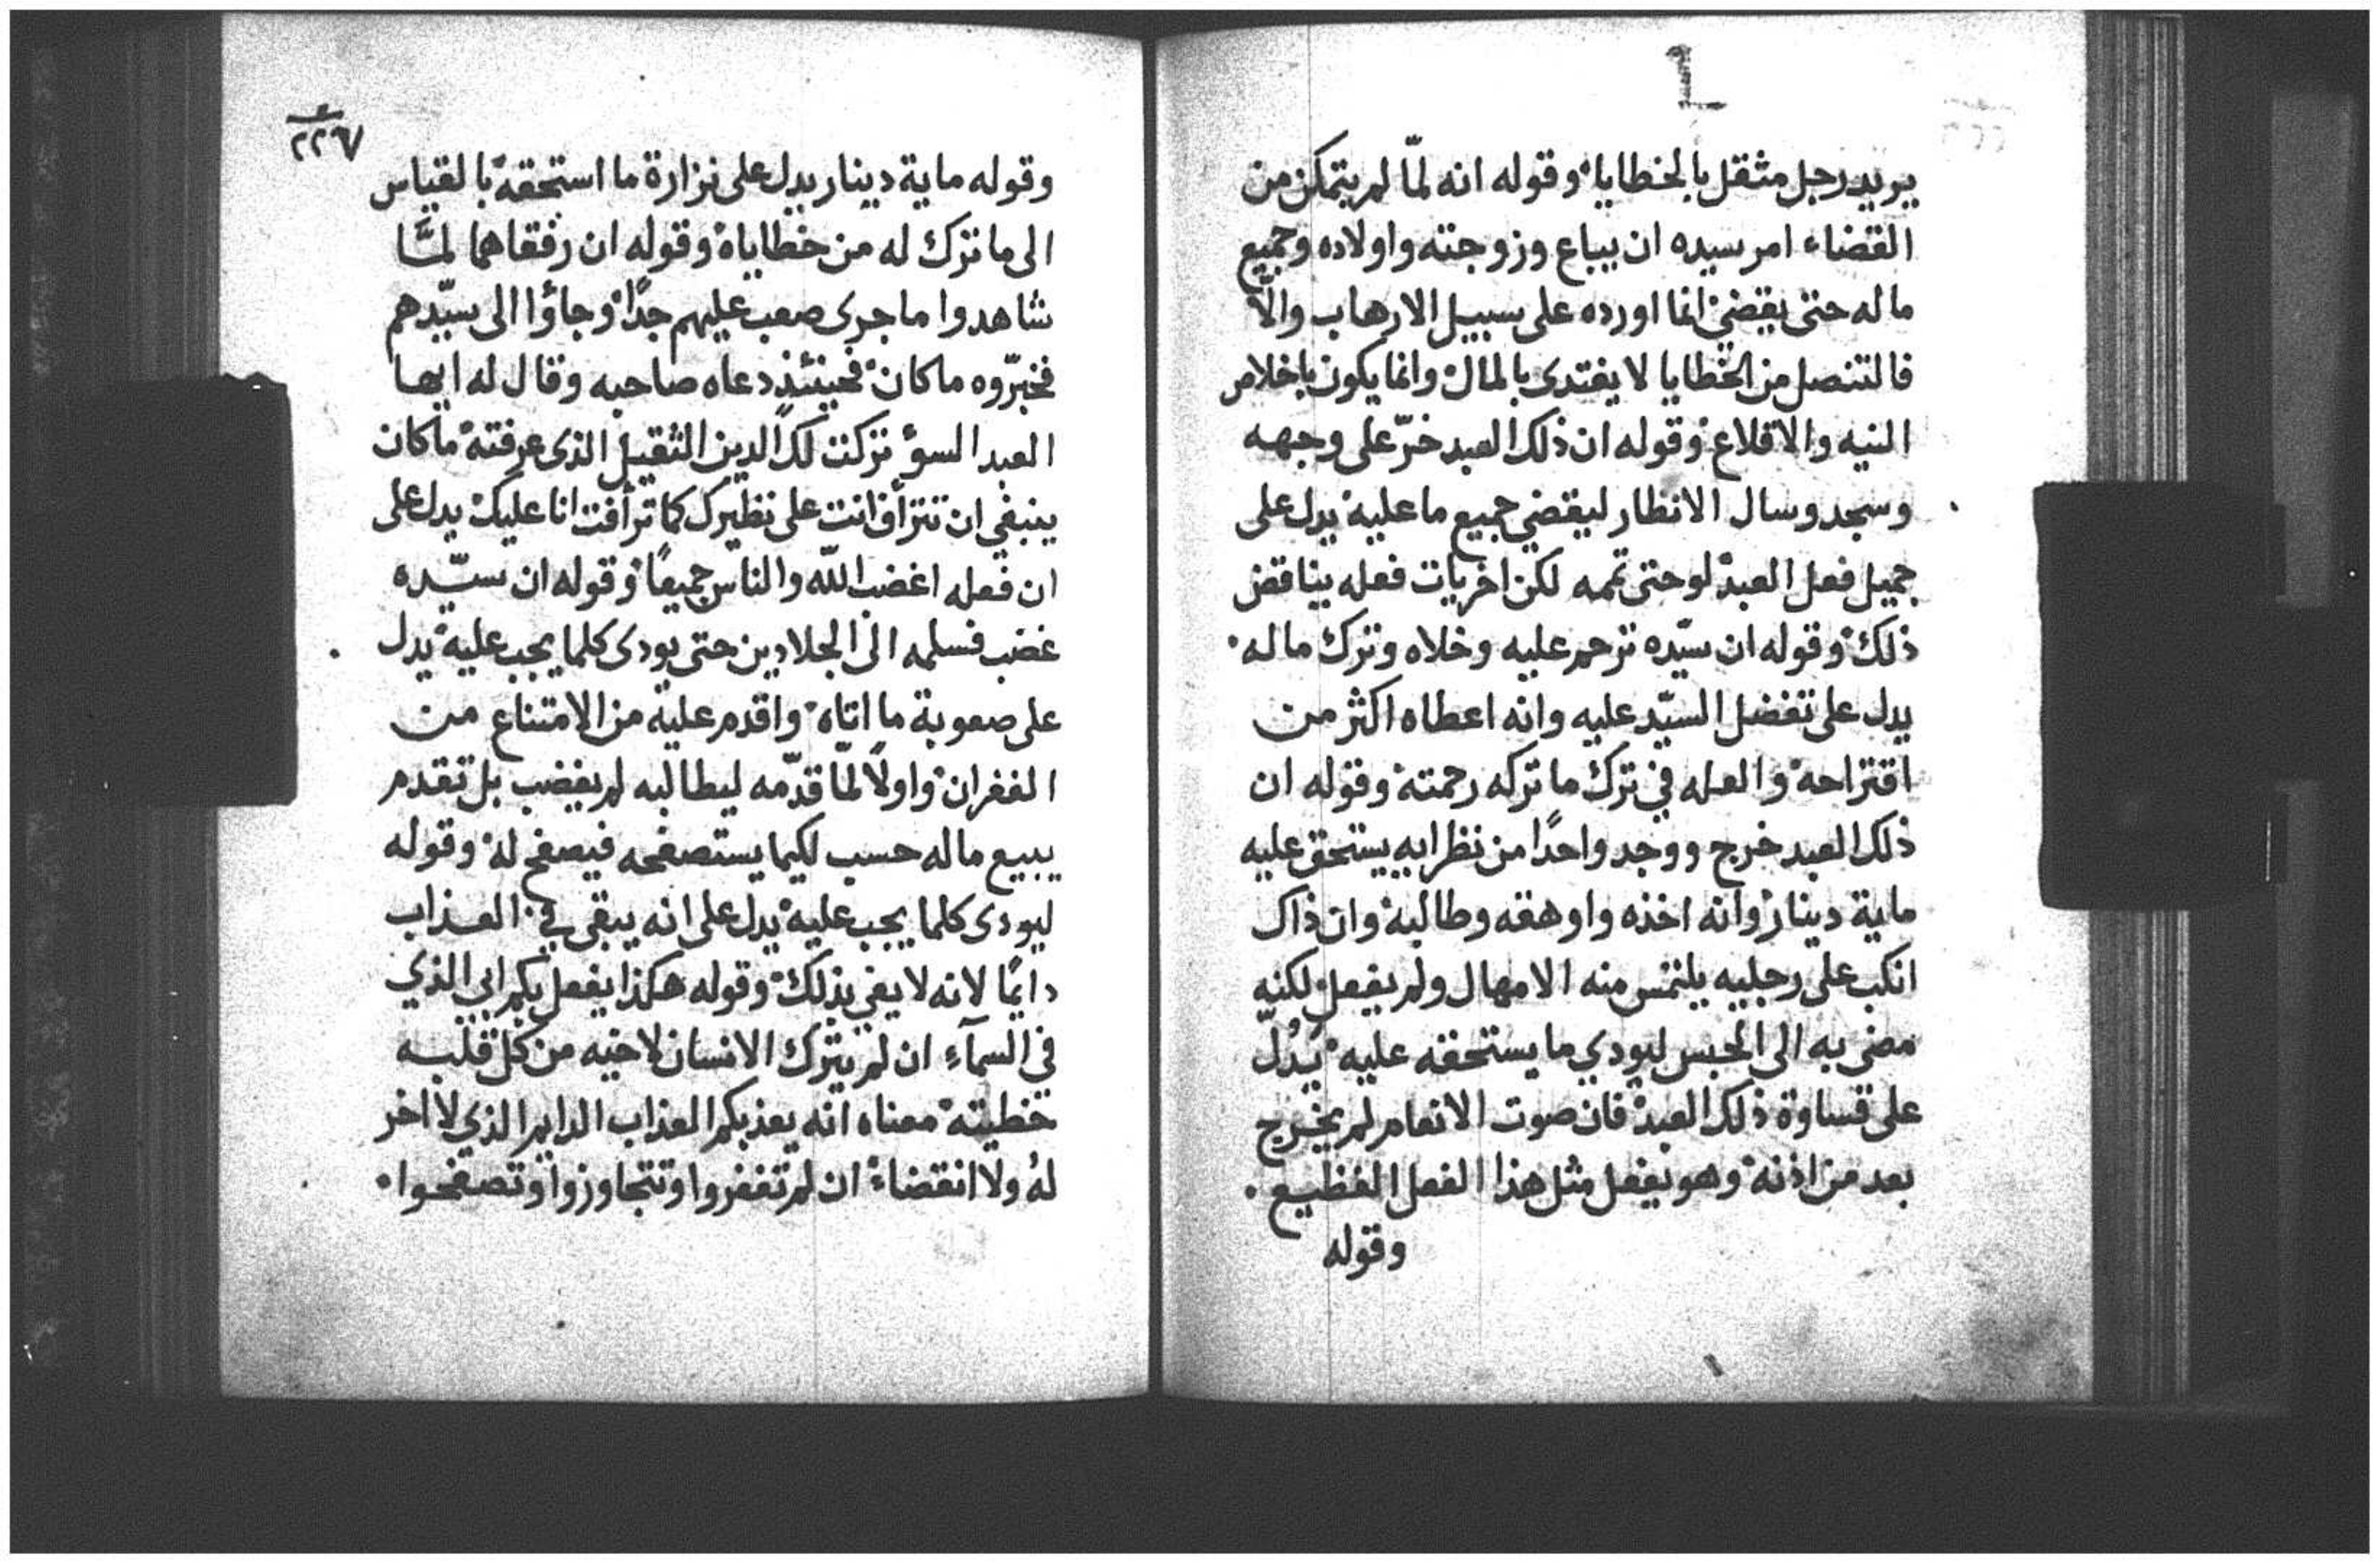 يريد رجل مثقل بالخطايا وقوله انه لمّا لم يتمكن من
القضاء امر سيده ان يباع وزوجته واولاده وجميع
ماله حتى يقضي انما اورده على سبيل الارهاب والّا
فالتنصل من الخطايا لا يفتدى بالمال وانما يكون باخلاص
النيه والاقلاع وقوله ان ذلك العبد خرّ على وجهه
وسجد وسال الانظار ليقضي جميع ما عليه يدل على
جميل فعل العبد لو حتى تممه لكن اخريات فعله يناقض
ذلك وقوله ان سيّده ترحم عليه وخلاه وترك ماله
يدل على تفضل السيّد عليه وانه اعطاه اكثر من
اقتراحه والعله في ترك ما تركه رحمته وقوله ان
ذلك العبد خرج ووجد واحدًا من نظرايه يستحق عليه
ماية دينار وانه اخذه واوهقه وطالبه وان ذاك
انكب على رجليه يلتمس منه الامهال ولم يفعل لكنه
مضى به الى الحبس ليودي ما يستحقه عليه يدُلّ
على قساوة ذلك العبد فان صوت الانعام لم يخرج
بعد من اذنه وهو يفعل مثل هذا الفعل الفظيع
وقوله
٢٢٦٧
وقوله ماية دينار يدل على نزارة ما استحقه بالقياس
الى ما ترك له من خطاياه وقوله ان رفقاهما لمّا
شاهدوا ما جرى صعب عليهم جدًا وجاؤا الى سيّدهم
فخبّروه ما كان فحينئذ دعاه صاحبه وقال له ايها
العبد السؤ تركت لك الدين الثقيل الذى عرفته ما كان
ينبغي ان تتراف انت على نظيرك كما ترافت انا عليك يدل على
ان فعله اغضب اللّه والناس جميعًا وقوله ان سيّده
غضب فسلمه الى الجلادين حتى يودى كلما يجب عليه يدل
على صعوبة ما اتاه واقدم عليه من الامتناع من
الغفران واولًا لمّا قدّمه ليطالبه لم يغضب بل تقدم
يبيع ماله حسب لكيما يستصفحه فيصفح له وقوله
ليودى كلما يجب عليه يدل على انه يبقى في العذاب
دايمًا لانه لا يفي بذلك وقوله هكذا يفعل بكم ابي الذي
في السمآء ان لم يترك الانسان لاخيه من كل قلبه
خطيته معناه انه يعذبكم العذاب الدايم الذي لا اخر
لهُ ولا انقضاء ان لم تغفروا وتتجاوزوا وتصفحوا